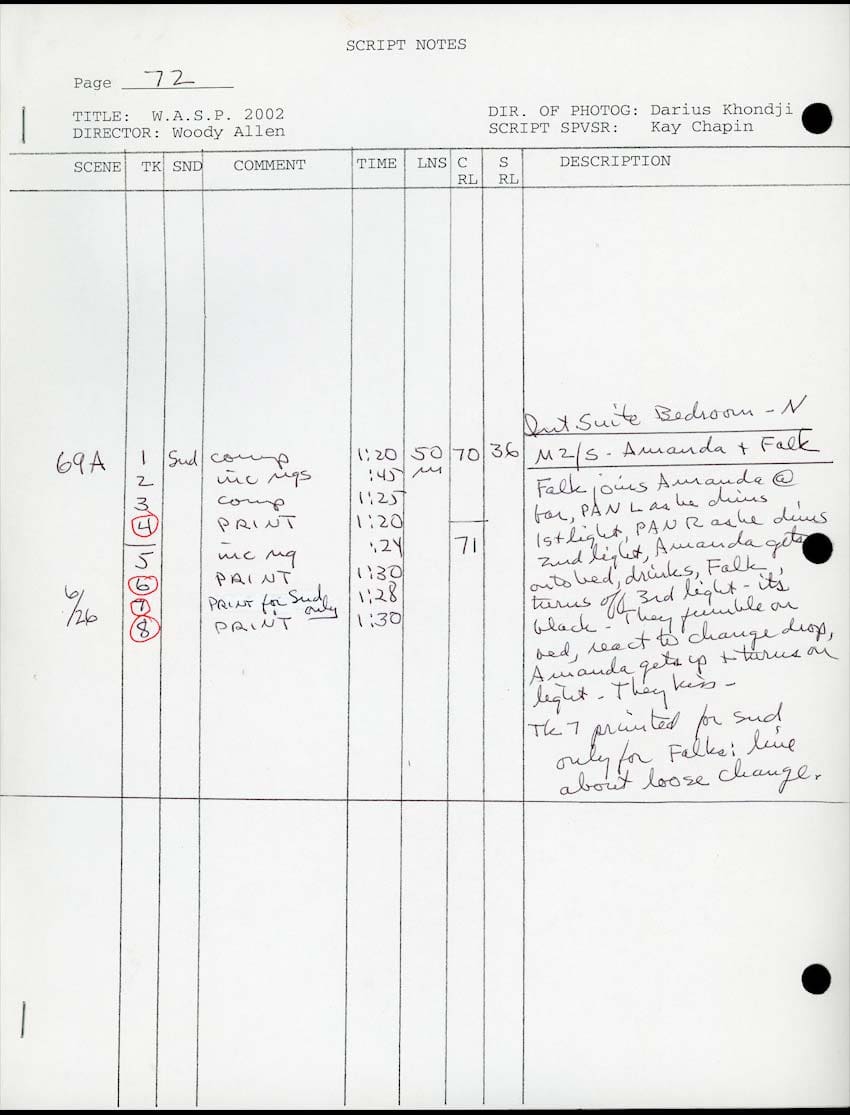 SCRIPT NOTES
Page 72
TITLE: W.A.S.P. 2002
DIRECTOR: Woody Allen
DIR. OF PHOTOG: Darius Khondji
SCRIPT SPVSR: Kay Chapin
SCENE TK SND COMMENT TIME LNS C RL S RL DESCRIPTION
Int Suite Bedroom - N
69A 1 Snd comp 1:20 50 70 36 M2/S - Amanda + Falk
2 inc ngs :45 m
3 comp 1:25
4 PRINT 1:20
5 inc ng :24 71
6 PRINT 1:30
7 PRINT for Snd only 1:28
8 PRINT 1:30
6/26
Falk joins Amanda @
bar, PAN L as he dims
1st light, PAN R as he dims
2nd light, Amanda gets
onto bed, drinks, Falk
turns off 3rd light - its
black - They fumble on
bed, react to change drop,
Amanda gets up + turns on
light - They kiss -
TK 7 printed for snd
only for Falks: line
about loose change.